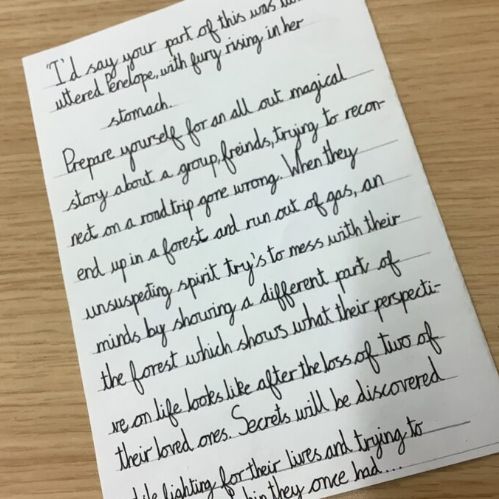 "I'd say your part of this was
uttered Penelope, with fury rising in her
stomach.
Prepare yourself for an all out magical
story about a group, freinds, trying to recon-
nect on a roadtrip gone wrong. When they
end up in a forest and run out of gas, an
unsuspecting spirit try's to mess with their
minds by showing a different part of
the forest which shows what their perspecti-
ve on life looks like after the loss of two of
their loved ones. Secrets will be discovered
fighting for their lives and trying to
they once had...